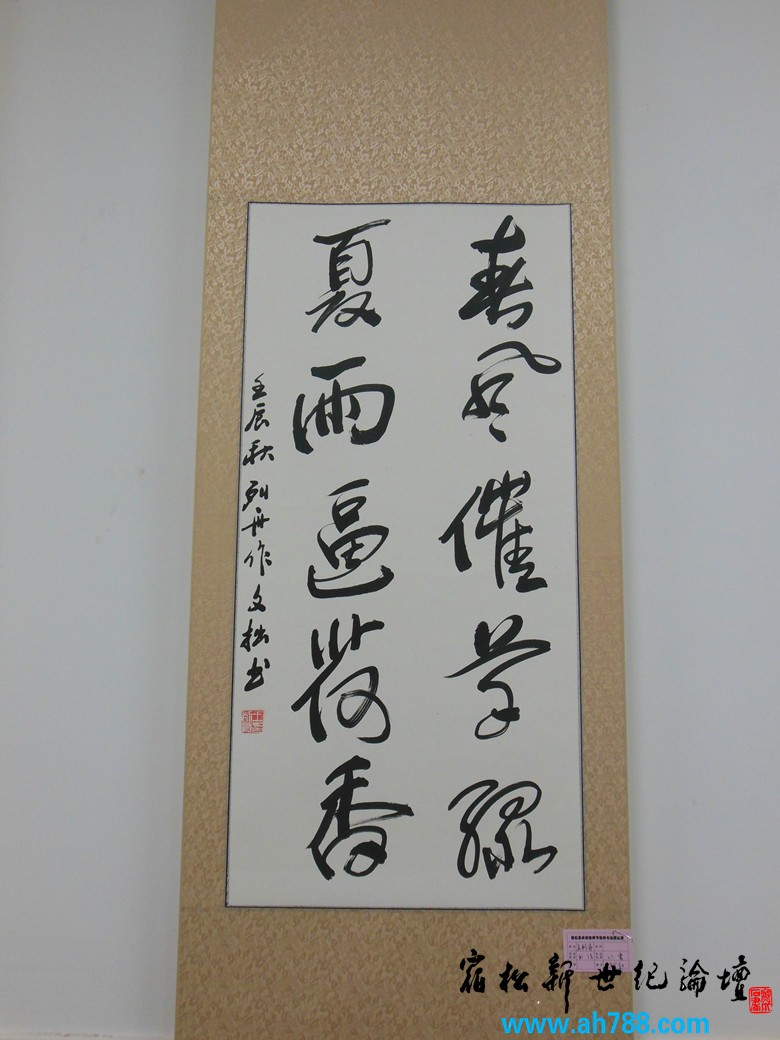 春風催草綠
夏雨逼荷香
壬辰秋列舟作文拙书
宿松新世纪論壇
www.ah788.com